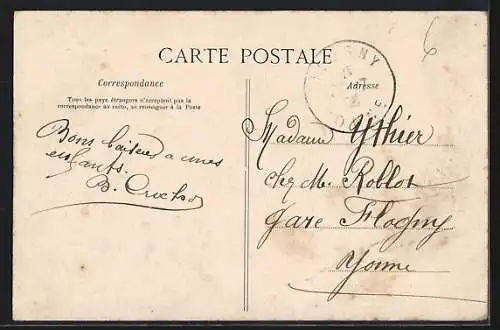 CARTE POSTALE
Correspondance
Tous les pays étrangers n'acceptent pas la
correspondance au recto, se renseigner à la Poste
Adresse
Bons baisers a mes
enfants.
B.
Madame Ythier
chez M. Roblot
gare Flogny
Yonne
6